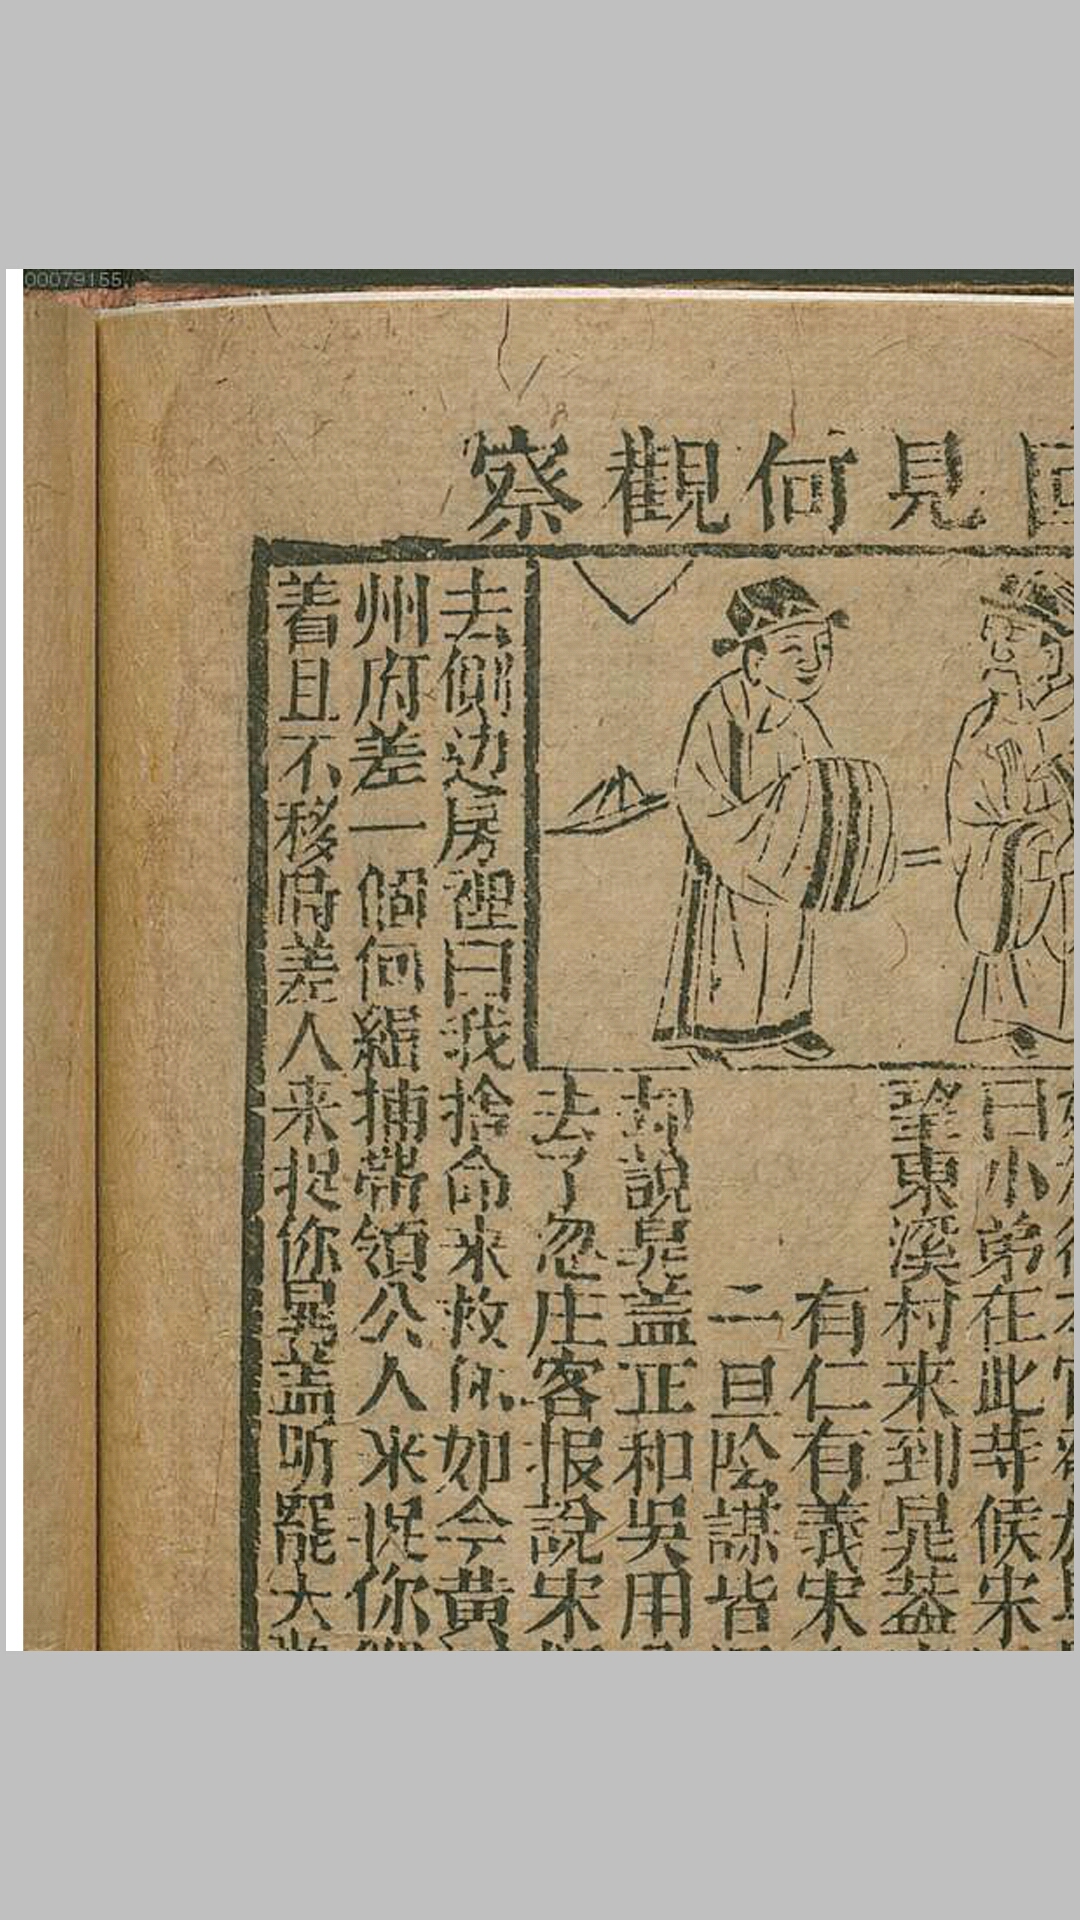 00079155
回見何觀察
曰小弟在此寺候宋
望東溪村来到晁蓋
有仁有義宋
二旦陰謀皆
却說晁盖正和吳用
去了忽庄客报說宋
去側边房裡曰我捨命来救你如今黄
州府差一個何緝捕帶領公人来捉你
着且不移时差人来捉你晁盖听罷大